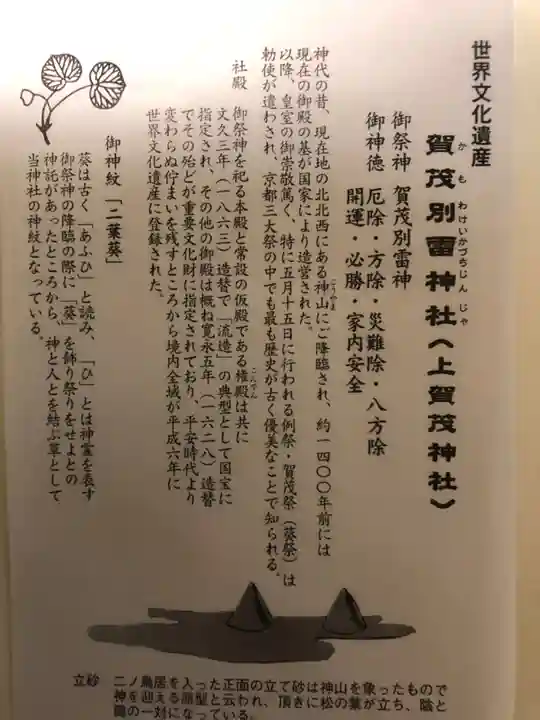 世界文化遺産
賀茂別雷神社（上賀茂神社）
か も わけいかづちじん じゃ
御祭神 賀茂別雷神
御神徳 厄除・方除・災難除・八方除
開運・必勝・家内安全
神代の昔、現在地の北北西にある神山にご降臨され、約一四〇〇年前には
こうやま
現在の御殿の基が国家により造営された。
以降、皇室の御崇敬篤く、特に五月十五日に行われる例祭・賀茂祭（葵祭）は
勅使が遣わされ、京都三大祭の中でも最も歴史が古く優美なことで知られる。
社殿 御祭神を祀る本殿と常設の仮殿である権殿は共に
ごんでん
文久三年（一八六三）造替で「流造」の典型として国宝に
指定され、その他の御殿は概ね寛永五年（一六二八）造替
でその殆どが重要文化財に指定されており、平安時代より
変わらぬ佇まいを残すところから境内全域が平成六年に
世界文化遺産に登録された。
御神紋「二葉葵」
葵は古く「あふひ」と読み、「ひ」とは神霊を表す
御祭神の降臨の際に「葵」を飾り祭りをせよとの
神託があったところから、神と人とを結ぶ草として
当神社の神紋となっている。
立砂 二ノ鳥居を入った正面の立て砂は神山を象ったもので
神を迎える憑代と云われ、頂きに松の葉が立ち、陰と
陽の一対になっている。